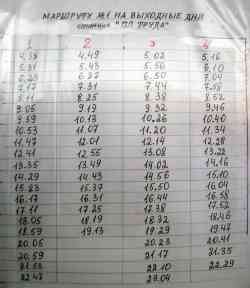 МАРШРУТУ №1 НА ВЫХОДНЫЕ ДНИ
"ПЛ ТРУДА"
1 2 3 4
4.49 5.02 5.16
5.43 5.56 6.10
6.23 6.37 6.50 7.04
7.17 7.31 7.44 7.58
8.11 8.25 8.38 8.52
9.05 9.19 9.32 9.46
9.59 10.13 10.26 10.40
10.53 11.07 11.20 11.34
11.47 12.01 12.14 12.28
12.41 12.55 13.08 13.22
13.35 13.49 14.02 14.16
14.29 14.43 14.56 15.10
15.23 15.37 15.50 16.04
16.17 16.31 16.44 16.58
17.11 17.25 17.38 17.52
18.05 18.19 18.32 18.46
18.59 19.13 19.29 19.47
20.05 20.23 20.41
20.59 21.17 21.35
21.53 22.10 22.29
22.47 23.04